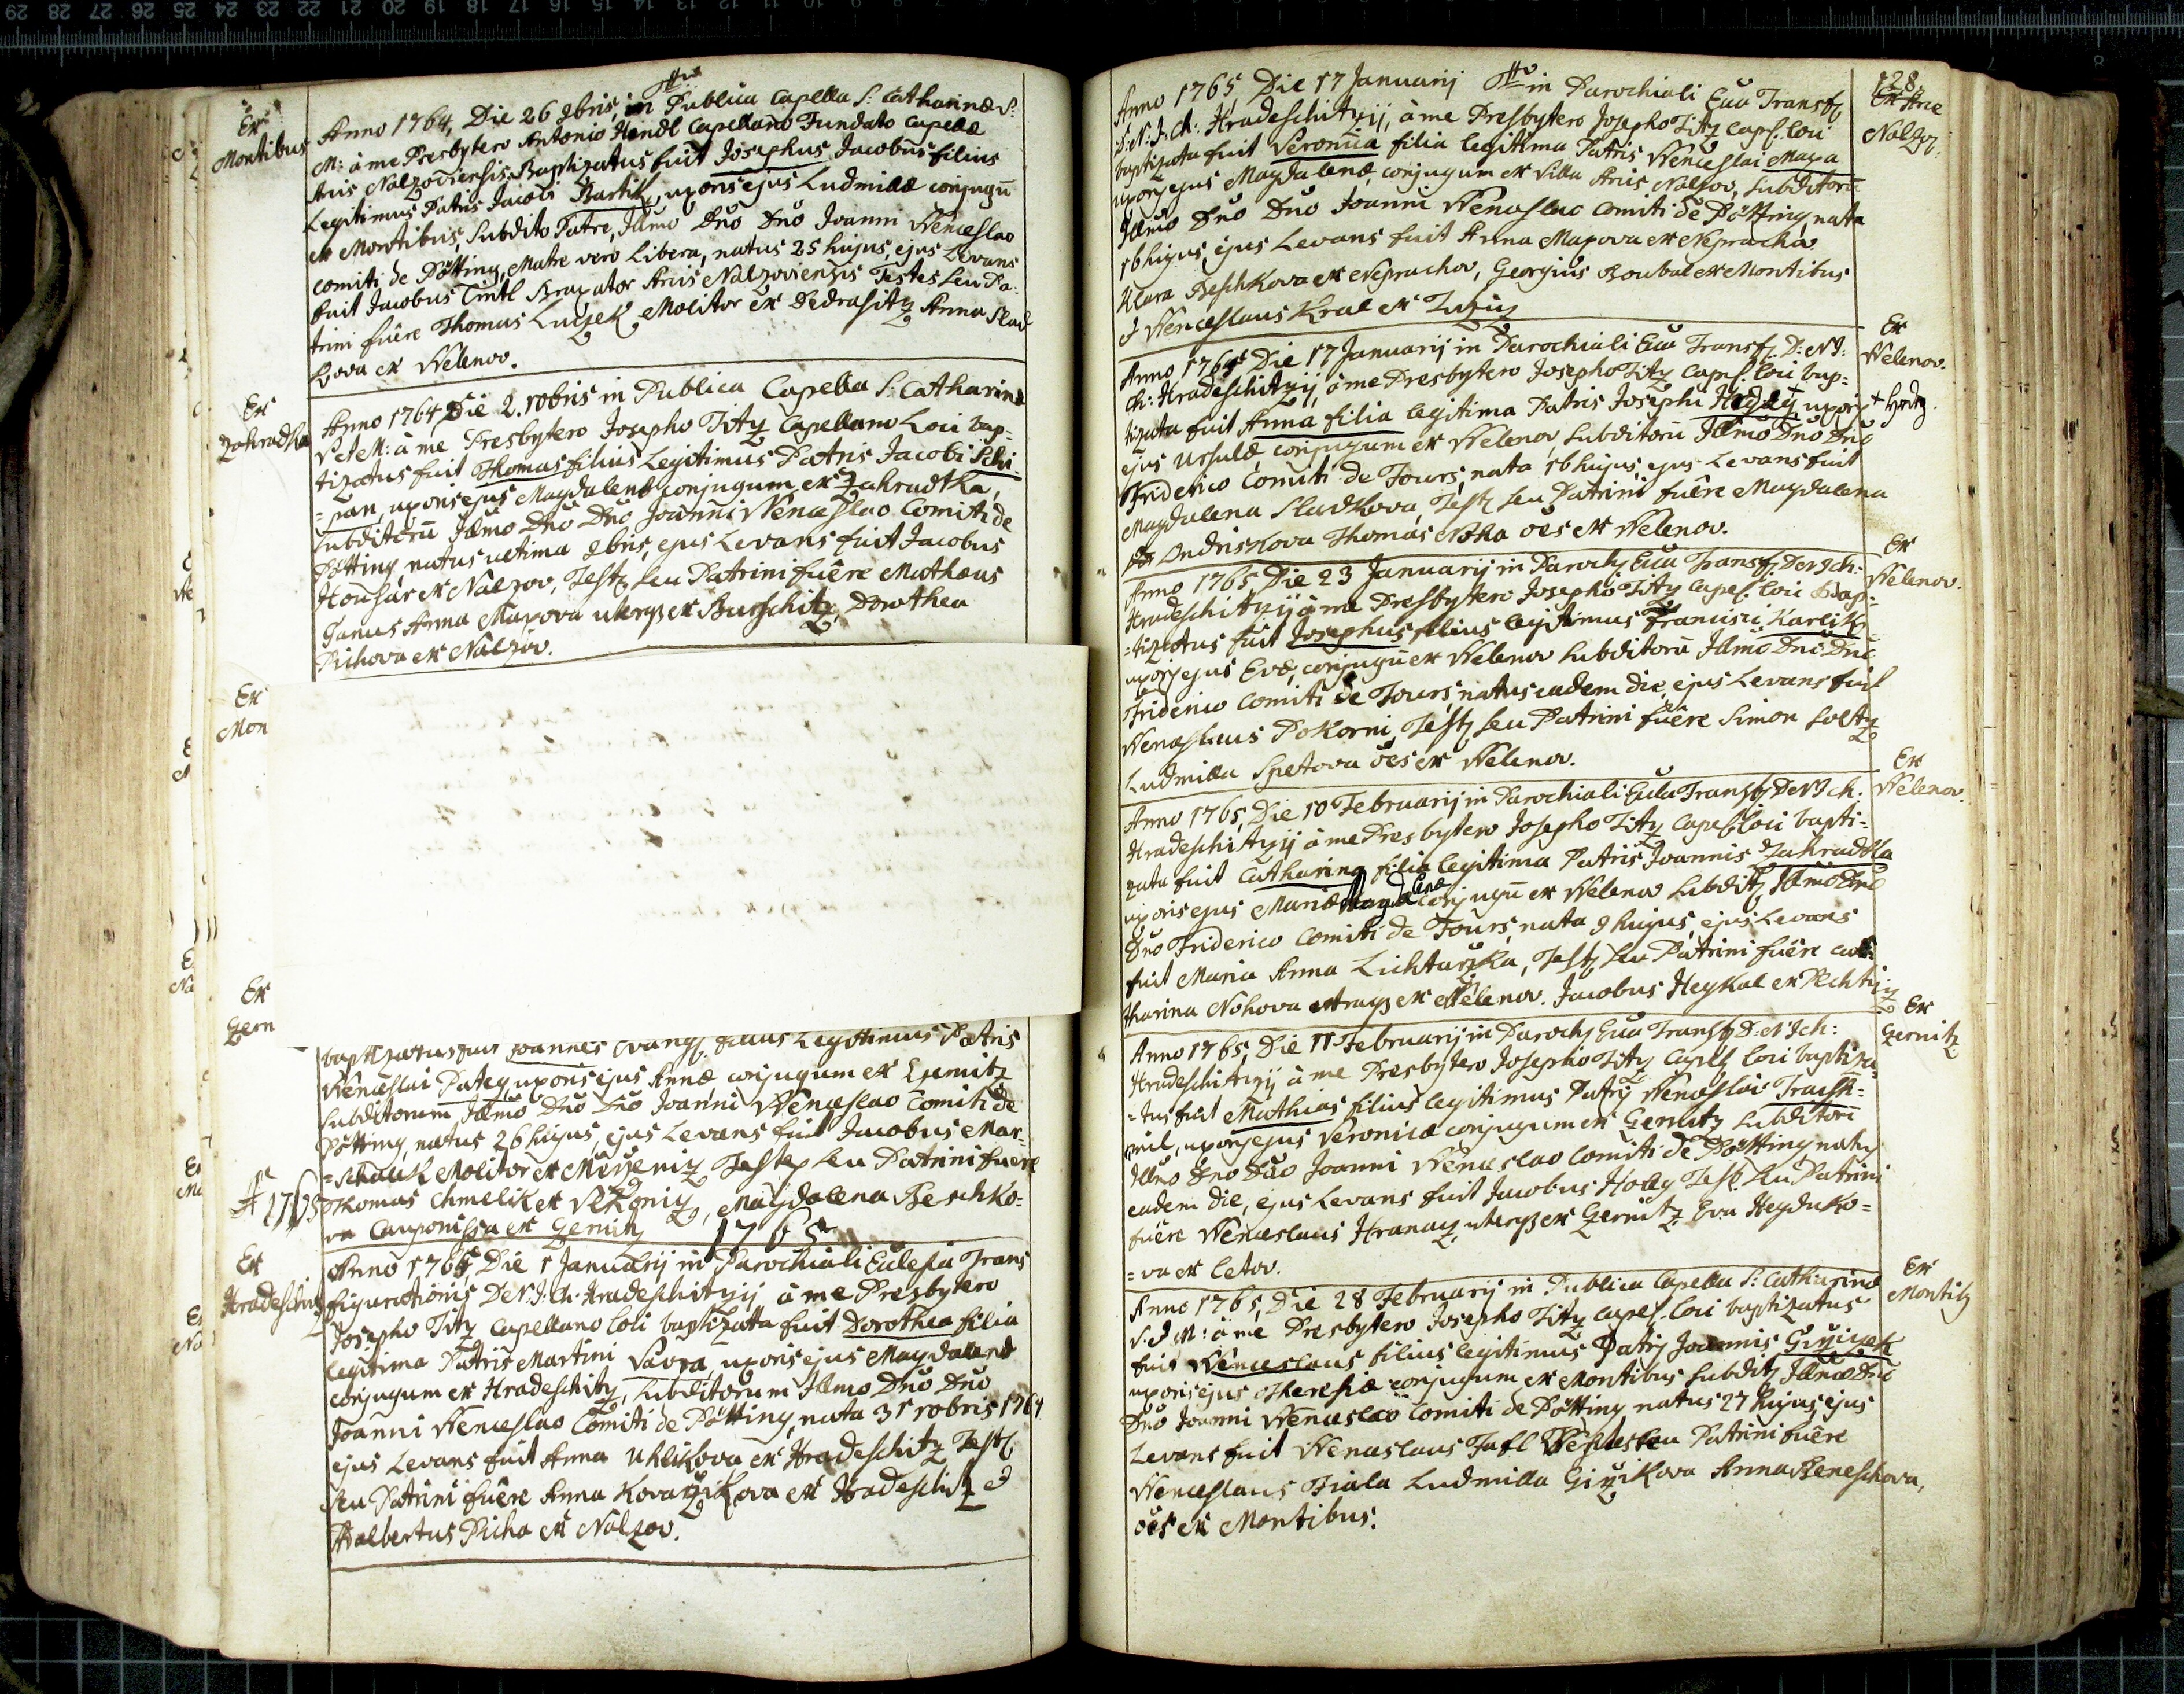 Ex
Montibus
Anno 1764, Die 26 9bris, in Publica Capella S: Catharinæ S:
M: à me Presbytero Antonio Hendl Capellano Fundato Capellæ
Arcis Nalzoviensis Baptizatus fuit Josephus Jacobus filius
Legitimus Patris Jacobi Bartik, uxoris ejus Ludmillæ conjugū
ex Montibus, Subdito Patre, Illmo Dno Dno Joanni Wenceslao
comiti de Pötting, Matre vero Libera, natus 25 hujus, ejus Levans
fuit Jacobus Tintl Braxator Arcis Nalzoviensis Testes seu Pa-
trini fuêre Thomas Luczek Molitor ex Bedrasitz Anna Slad
kova ex Welenov.
Ex
Zahradka
Anno 1764 Die 2. 10bris in Publica Capella S: Catharinæ
V et M: à me Presbytero Josepho Titz Capellano Loci bap-
tizatus fuit Thomas filius Legitimus Patris Jacobi Schi-
=pan, uxoris ejus Magdalenæ conjugum ex Zahradka,
subditorū Illmo Dno Dno Joanni Wenceslao Comiti de
Pötting natus ultima 9bris, ejus Levans fuit Jacobus
Housar ex Nalzov, Test seu Patrini fuêre Matheus
Janus Anna Maxova uterq ex Burschitz, Dorothea
Pichova ex Nalzov.
Ex
Mon
Ex
Zern
baptizatus fuit Joannes Evang. filius Legittimus Patris
Wenceslai Pateq uxoris ejus Annæ conjugum ex Zernitz
subditorum Illmo Dno Dno Joanni Wenceslao Comiti de
Pötting, natus 26 hujus, ejus Levans fuit Jacobus Mar-
=schalik Molitor ex Testes seu Patrini fuere
Thomas Chmelik ex , Magdalena Beschko-
va Cauponissa ex Zernitz
A 1765
1765
Ex
Hradeschitz
Anno 1765, Die 1 Januarij in Parochiali Eclesia Trans
figurationis D: N: J: Ch: Hradeschitzij à me Presbytero
Josepho Titz Capellano loci baptizatta fuit Dorothea filia
legitima Patris Martini Vavra, uxoris ejus Magdalenæ
conjugum ex Hradeschitz, subditorum Illmo Dno Dno
Joanni Wenceslao Comiti de Pötting, nata 31 10bris 1764
ejus Levans fuit Anna Uhlikova ex Hradeschitz Test
seu Patrini fuêre Anna Kovarzikova ex Hradeschitz &
Adalbertus Picha ex Nalzov.
128.
Ex Arce
Nalzov:
Anno 1765 Die 17 Januarij in Parochiali Ecca Transf
D: N: J: Ch: Hradeschitzij, à me Presbytero Josepho Titz Capel. loci
baptizata fuit Veronica filia legitima Patris Wenceslai Maxa
uxoris ejus Magdalenæ, conjugum ex Villa Arcis Nalzov, subditorū
Illmo Dno Dno Joanni Wenceslao Comiti de Pötting, nata
16 hujus, ejus Levans fuit Anna Maxova ex Neprachov
Klara Beschkova ex Neprachov, Georgius Boubal ex Montibus
& Wenceslaus Kral ex
Ex
Welenov.
Anno 1765 Die 17 Januarij in Parochiali Ecca Transf. D: N J:
Ch: Hradeschitzij, à me Presbytero Josepho Titz Capel. loci bap-
tizata fuit Anna filia legitima Patris Josephi uxoris
ejus Ursulæ conjugum ex Welenov, subditorū Illmo Dno Dno
Friderico Comiti de Fours, nata 16 hujus, ejus Levans fuit
Magdalena Sladkova, Test seu Patrini fuêre Magdalena
Ondriskova Thomas Noha oes ex Welenov.
Ex
Welenov.
Anno 1765 Die 23 Januarij in Paroch Ecca Transf D N J Ch:
Hradeschitzij à me Presbytero Josepho Titz Capel. loci Bap-
=tizatus fuit Josephus filius legitimus Francisci Karlik
uxoris ejus Evæ, conjugū ex Welenov subditorū Illmo Dno Dno
Friderico Comiti de Fours, natus eadem die, ejus Levans fuit
Wenceslaus Pokorni, Test seu Patrini fuêre Simon
Ludmilla Spetova oes ex Welenov.
Ex
Welenov.
Anno 1765, Die 10 Februarij in Parochiali Eccla Transf D N J Ch.
Hradeschitzij à me Presbytero Josepho Titz Capel loci bapti-
zata fuit Catharina filia legitima Patris Joannis Zahradka
uxoris ejus Mariæ Magdalenæ conjugū ex Welenov subdit Illmo Dno
Dno Friderico Comiti de Fours, nata 9 hujus, ejus Levans
fuit Maria Anna Lichtarzka, Test seu Patrini fuêre Cat-
tharina Nohova utraq ex Welenov. Jacobus Heykal ex
Ex
Zernitz
Anno 1765, Die 11 Februarij in Paroch Ecca Transf D: N J Ch:
Hradeschitzij à me Presbytero Josepho Titz Capell loci baptiza-
=tus fuit Mathias filius legitimus Patris Wenceslai
uxoris ejus Veronicæ conjugum ex Zernitz subditorū
Illmo Dno Dno Joanni Wenceslao Comiti de Pötting natus
eadem die, ejus Levans fuit Jacobus Holly Test. seu Patrini
fuêre Wenceslaus Hranacz, uterq ex Zernitz Eva Heyduko-
=va ex Letov.
Ex
Montib
Anno 1765, Die 28 Februarij in Publica Capella S: Catharinæ
V: & M: à me Presbytero Josepho Titz Capel. loci baptizatus
fuit Wenceslaus filius legitimus Patris Joannis
uxoris ejus Theresiæ conjugum ex Montibus subdit Illmo Dno
Dno Joanni Wenceslao Comiti de Pötting natus 27 hujus, ejus
Levans fuit Wenceslaus Tafl Testes seu Patrini fuêre
Wenceslaus Fiala Ludmilla Girzikova Anna Beneschova,
oes ex Montibus.